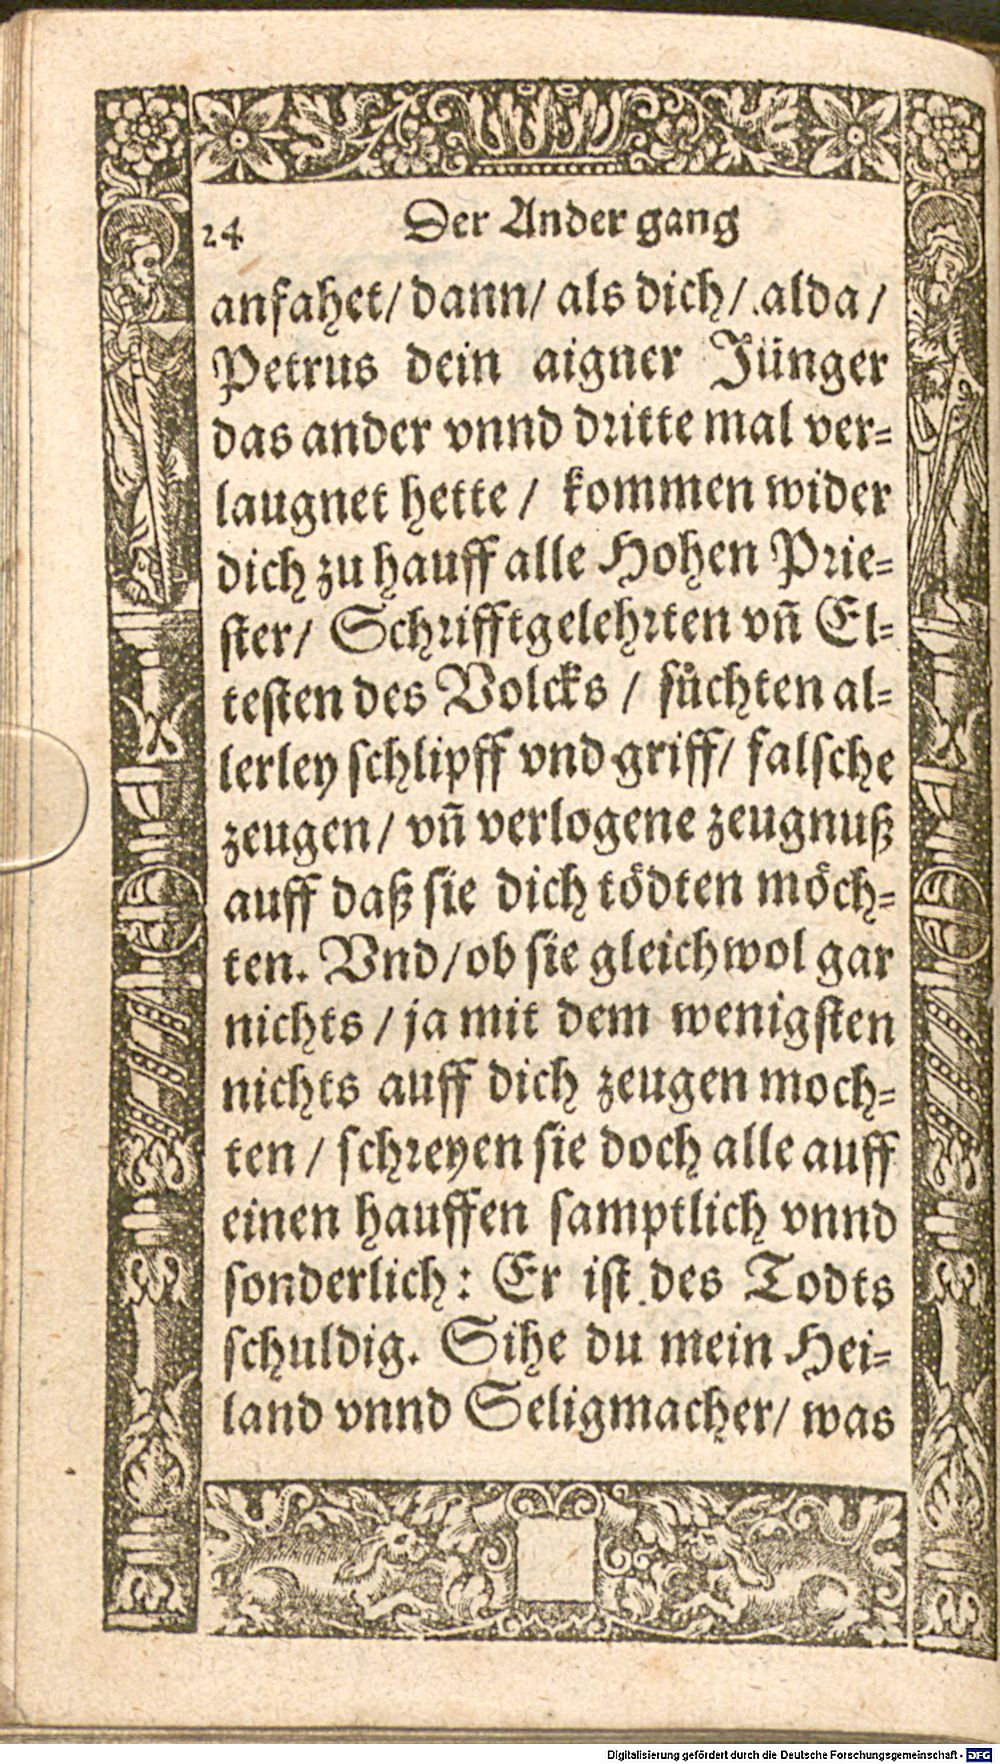 24 Der Ander gang
anfahet/ dann/ als dich/ alda/
Petrus dein aigner Jünger
das ander vnnd dritte mal ver=
laugnet hette / kommen wider
dich zu hauff alle Hohen Prie=
ster/ Schrifftgelehrten vñ El=
testen des Volcks / sůchten al=
lerley schlipff vnd griff/ falsche
zeugen/ vñ verlogene zeugnuß
auff daß sie dich tödten möch=
ten. Vnd/ob sie gleichwol gar
nichts / ja mit dem wenigsten
nichts auff dich zeugen moch=
ten / schreyen sie doch alle auff
einen hauffen samptlich vnnd
sonderlich: Er ist des Todts
schuldig. Sihe du mein Hei=
land vnnd Seligmacher/ was
Digitalisierung gefördert durch die Deutsche Forschungsgemeinschaft - DFG